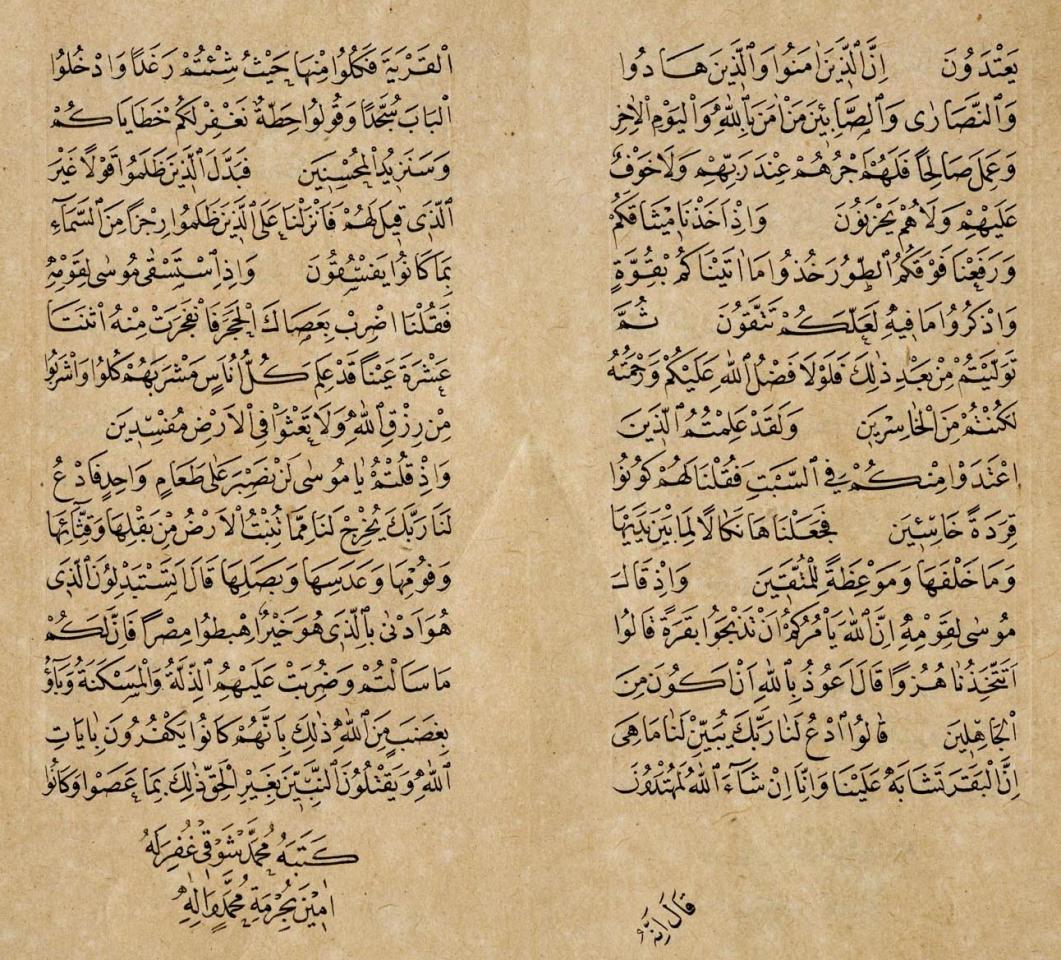 يَعْتَدُونَ اِنَّ الَّذِينَ اٰمَنُوا وَالَّذِينَ هَادُوا
وَالنَّصَارٰى وَالصَّابِئِينَ مَنْ اٰمَنَ بِاللّٰهِ وَالْيَوْمِ الْاٰخِرِ
وَعَمِلَ صَالِحًا فَلَهُمْ اَجْرُهُمْ عِنْدَ رَبِّهِمْ وَلَا خَوْفٌ
عَلَيْهِمْ وَلَا هُمْ يَحْزَنُونَ وَاِذْ اَخَذْنَا مِيثَاقَكُمْ
وَرَفَعْنَا فَوْقَكُمُ الطُّورَ خُذُوا مَا اٰتَيْنَاكُمْ بِقُوَّةٍ
وَاذْكُرُوا مَا فِيهِ لَعَلَّكُمْ تَتَّقُونَ ثُمَّ
تَوَلَّيْتُمْ مِنْ بَعْدِ ذٰلِكَ فَلَوْلَا فَضْلُ اللّٰهِ عَلَيْكُمْ وَرَحْمَتُهُ
لَكُنْتُمْ مِنَ الْخَاسِرِينَ وَلَقَدْ عَلِمْتُمُ الَّذِينَ
اعْتَدَوْا مِنْكُمْ فِي السَّبْتِ فَقُلْنَا لَهُمْ كُونُوا
قِرَدَةً خَاسِئِينَ فَجَعَلْنَاهَا نَكَالًا لِمَا بَيْنَ يَدَيْهَا
وَمَا خَلْفَهَا وَمَوْعِظَةً لِلْمُتَّقِينَ وَاِذْ قَالَ
مُوسٰى لِقَوْمِهِ اِنَّ اللّٰهَ يَأْمُرُكُمْ اَنْ تَذْبَحُوا بَقَرَةً قَالُوا
اَتَتَّخِذُنَا هُزُوًا قَالَ اَعُوذُ بِاللّٰهِ اَنْ اَكُونَ مِنَ
الْجَاهِلِينَ قَالُوا ادْعُ لَنَا رَبَّكَ يُبَيِّنْ لَنَا مَا هِيَ
اِنَّ الْبَقَرَ تَشَابَهَ عَلَيْنَا وَاِنَّا اِنْ شَآءَ اللّٰهُ لَمُهْتَدُونَ
قَالَ اِنَّهُ
الْقَرْيَةَ فَكُلُوا مِنْهَا حَيْثُ شِئْتُمْ رَغَدًا وَادْخُلُوا
الْبَابَ سُجَّدًا وَقُولُوا حِطَّةٌ نَغْفِرْ لَكُمْ خَطَايَاكُمْ
وَسَنَزِيدُ الْمُحْسِنِينَ فَبَدَّلَ الَّذِينَ ظَلَمُوا قَوْلًا غَيْرَ
الَّذِي قِيلَ لَهُمْ فَاَنْزَلْنَا عَلَى الَّذِينَ ظَلَمُوا رِجْزًا مِنَ السَّمَآءِ
بِمَا كَانُوا يَفْسُقُونَ وَاِذِ اسْتَسْقٰى مُوسٰى لِقَوْمِهِ
فَقُلْنَا اضْرِبْ بِعَصَاكَ الْحَجَرَ فَانْفَجَرَتْ مِنْهُ اثْنَتَا
عَشْرَةَ عَيْنًا قَدْ عَلِمَ كُلُّ اُنَاسٍ مَشْرَبَهُمْ كُلُوا وَاشْرَبُوا
مِنْ رِزْقِ اللّٰهِ وَلَا تَعْثَوْا فِي الْاَرْضِ مُفْسِدِينَ
وَاِذْ قُلْتُمْ يَا مُوسٰى لَنْ نَصْبِرَ عَلٰى طَعَامٍ وَاحِدٍ فَادْعُ
لَنَا رَبَّكَ يُخْرِجْ لَنَا مِمَّا تُنْبِتُ الْاَرْضُ مِنْ بَقْلِهَا وَقِثَّآئِهَا
وَفُومِهَا وَعَدَسِهَا وَبَصَلِهَا قَالَ اَتَسْتَبْدِلُونَ الَّذِي
هُوَ اَدْنٰى بِالَّذِي هُوَ خَيْرٌ اِهْبِطُوا مِصْرًا فَاِنَّ لَكُمْ
مَا سَاَلْتُمْ وَضُرِبَتْ عَلَيْهِمُ الذِّلَّةُ وَالْمَسْكَنَةُ وَبَآؤُ
بِغَضَبٍ مِنَ اللّٰهِ ذٰلِكَ بِاَنَّهُمْ كَانُوا يَكْفُرُونَ بِاٰيَاتِ
اللّٰهِ وَيَقْتُلُونَ النَّبِيِّينَ بِغَيْرِ الْحَقِّ ذٰلِكَ بِمَا عَصَوْا وَكَانُوا
كَتَبَهُ مُحَمَّد شَوْقِي غُفِرَ لَهُ
اٰمِينَ بِحُرْمَةِ مُحَمَّدٍ وَاٰلِهِ